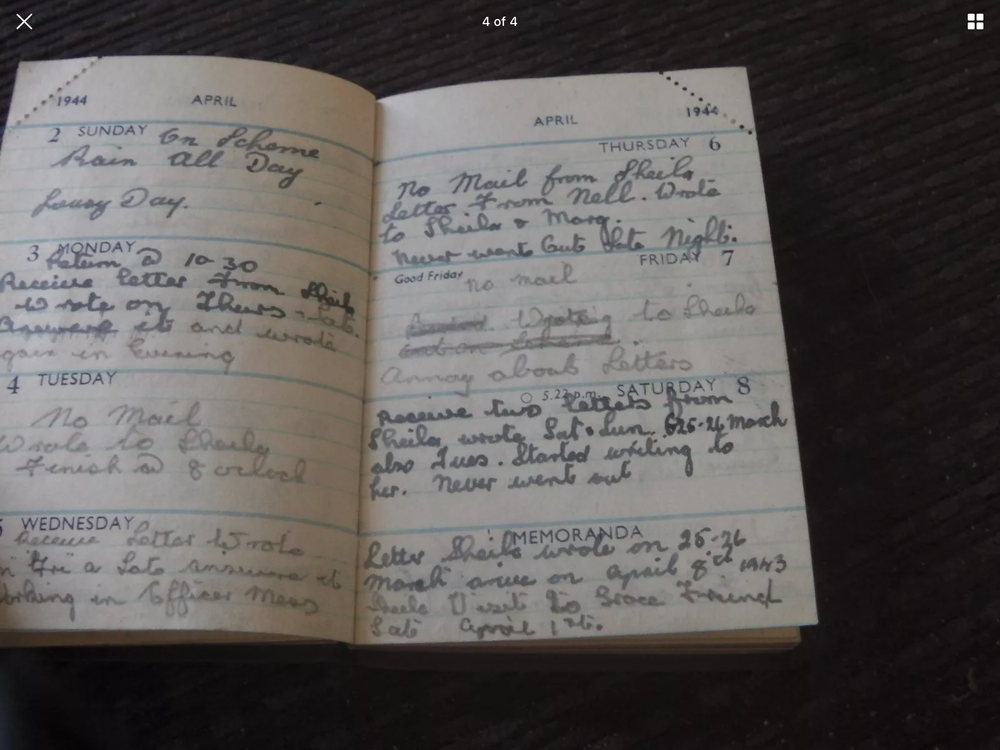 4 of 4
1944 APRIL
2 SUNDAY On Scheme
Rain all Day
Lousy Day.
3 MONDAY
Return @ 10-30
Receive letter From Sheila
Wrote on Thurs - Sat.
Answered it and wrote
gain in Evening
4 TUESDAY
No Mail
Wrote to Sheila
Finish @ 8 oclock
5 WEDNESDAY
Receive Letter Wrote
n Fri a Sato answered it
orking in Officer Mess
APRIL 1944
THURSDAY 6
No Mail from Sheila
Letter From Nell. Wrote
to Sheila & Marg.
Never went Out Late Night.
FRIDAY 7
Good Friday No mail
Writing to Sheila
out on Scheme.
Annoy about Letters
5.22 p.m. SATURDAY 8
Receive two letters from
Sheila wrote Sat & Sun. 25-26 March
also Tues. Started writing to
her. Never went out
MEMORANDA
Letter Sheila wrote on 25-26
March arive on April 8th 1943
Sheila Visit to Grace Friend
Sat April 1st.